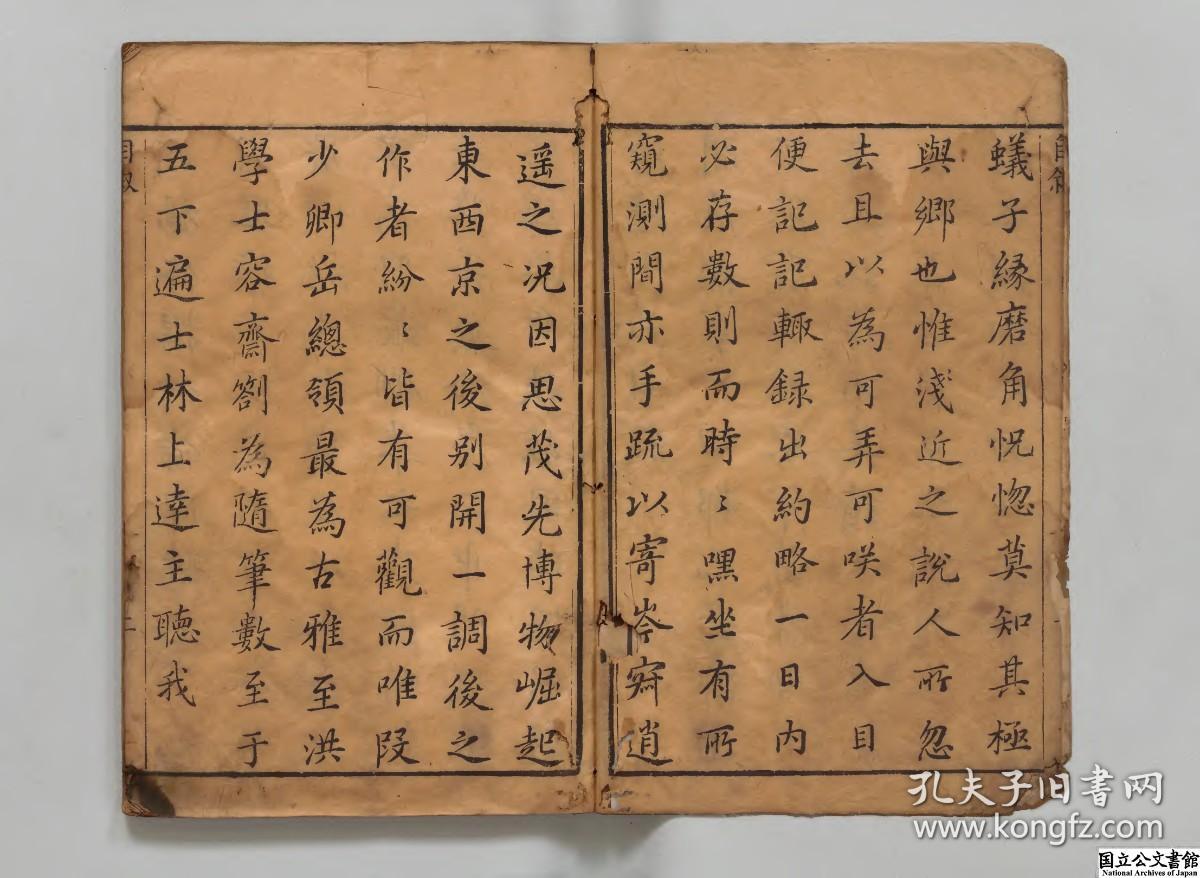 自敘
蟻子緣磨角怳惚莫知其極
與鄉也惟淺近之說人所忽
去且以為可弄可咲者入目
便記記輙録出約略一日內
必存數則而時〻嘿坐有所
窺測間亦手疏以寄岑寂逍
遥之况因思茂先博物崛起
東西京之後别開一調後之
作者紛〻皆有可觀而唯段
少卿岳總領最為古雅至洪
學士容齋劄為隨筆數至于
五下遍士林上逹主聽我
自敘
二
孔夫子旧书网
www.kongfz.com
国立公文書館
National Archives of Japan